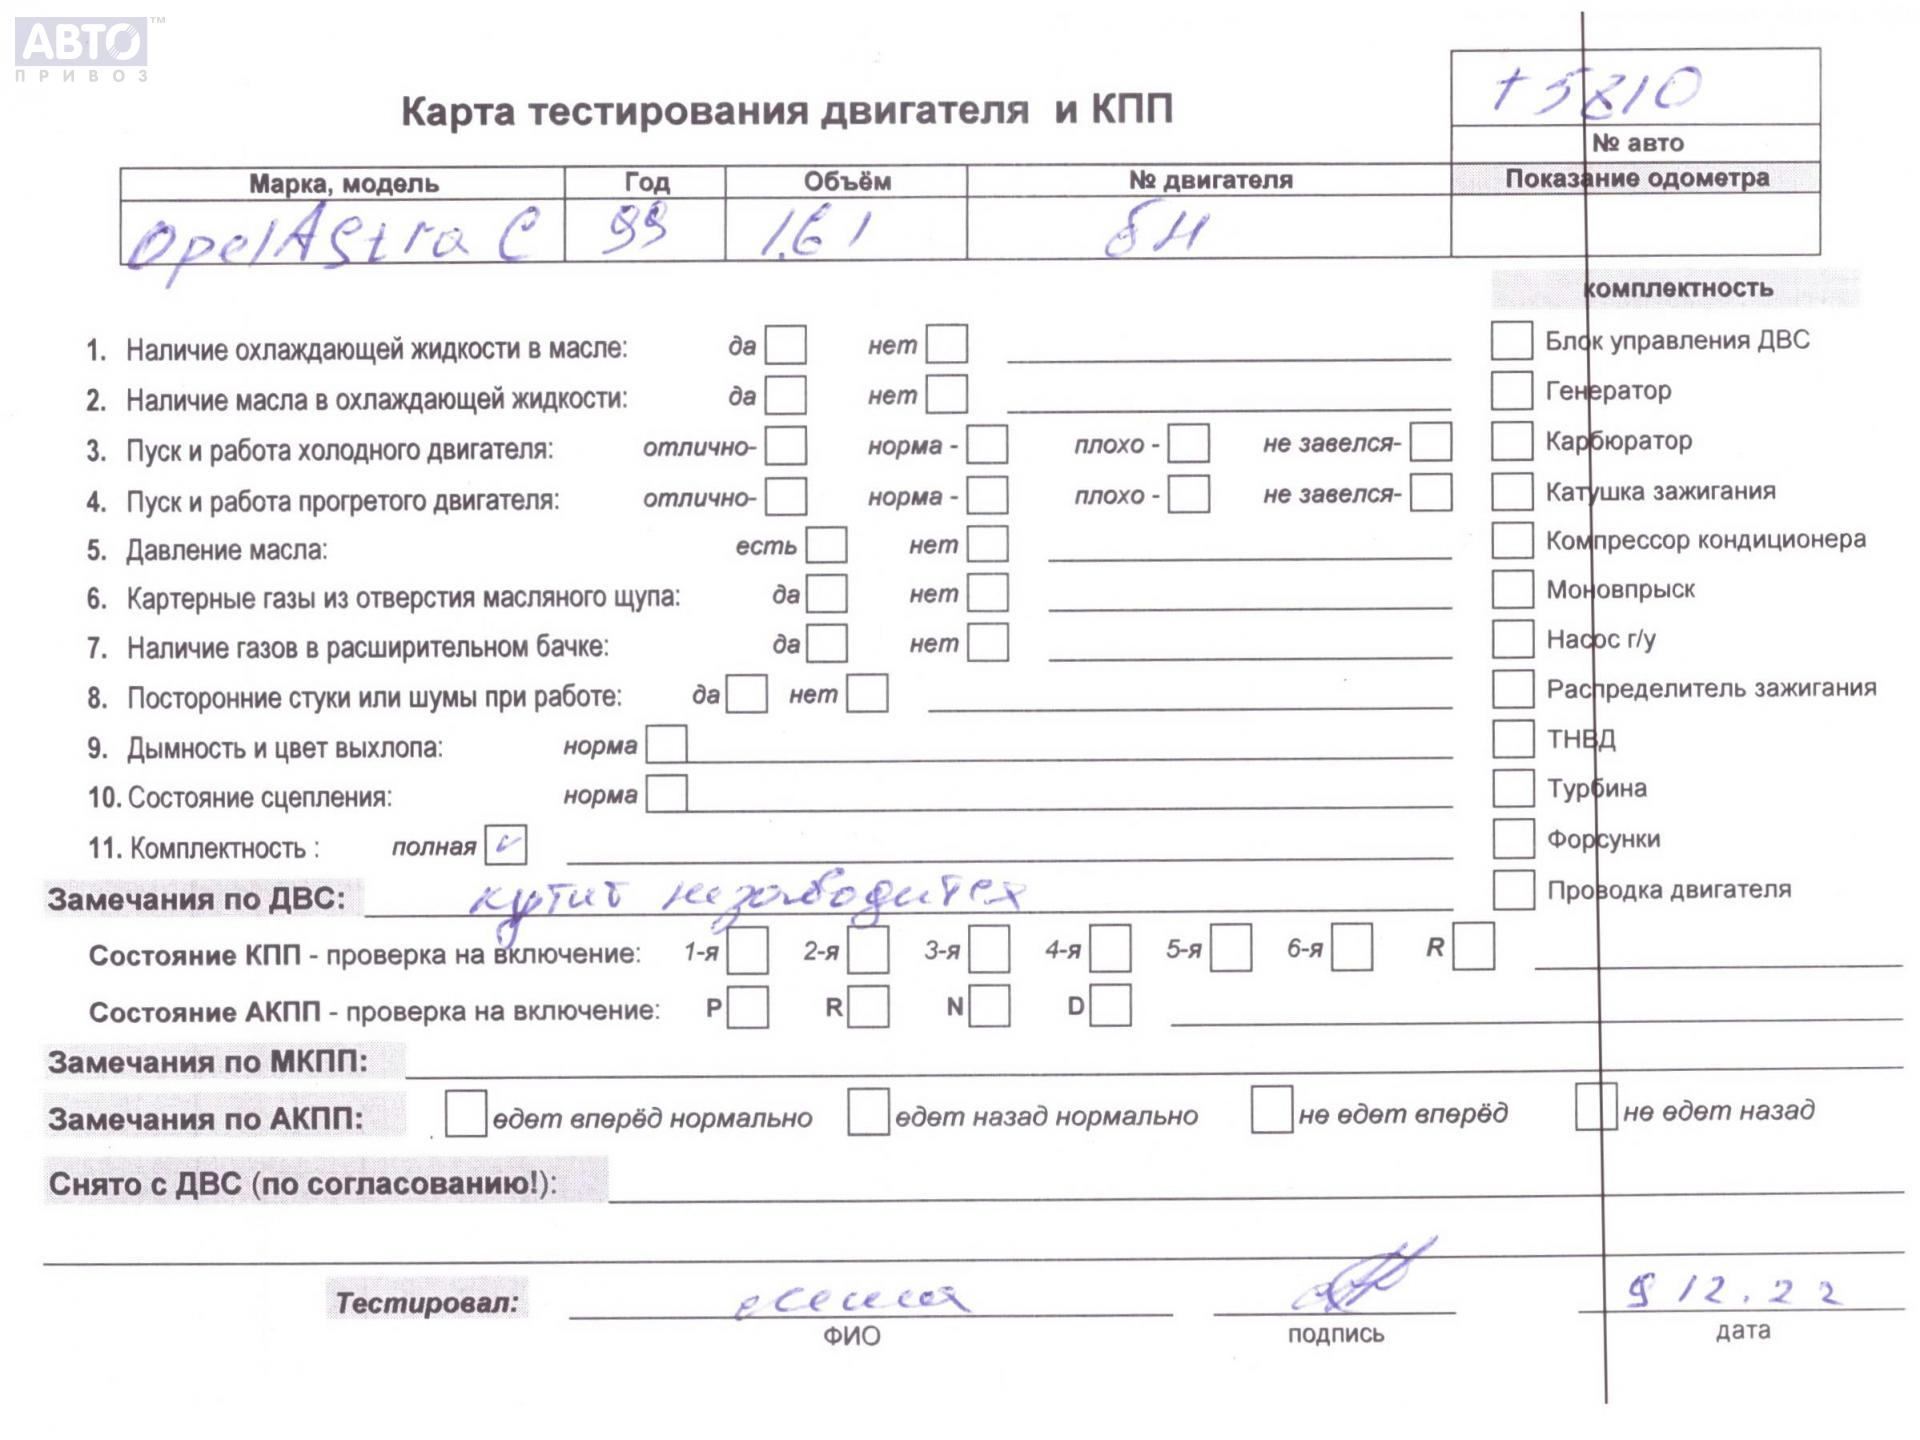 АВТО™
ПРИВОЗ
Карта тестирования двигателя и КПП
т 5810
№ авто
Марка, модель Год Объём № двигателя Показание одометра
Opel Astra C 99 1.6 i бн
комплектность
1. Наличие охлаждающей жидкости в масле: да нет Блок управления ДВС
2. Наличие масла в охлаждающей жидкости: да нет Генератор
3. Пуск и работа холодного двигателя: отлично- норма - плохо - не завелся- Карбюратор
4. Пуск и работа прогретого двигателя: отлично- норма - плохо - не завелся- Катушка зажигания
5. Давление масла: есть нет Компрессор кондиционера
6. Картерные газы из отверстия масляного щупа: да нет Моновпрыск
7. Наличие газов в расширительном бачке: да нет Насос г/у
8. Посторонние стуки или шумы при работе: да нет Распределитель зажигания
9. Дымность и цвет выхлопа: норма ТНВД
10. Состояние сцепления: норма Турбина
11. Комплектность : полная ✓ Форсунки
Замечания по ДВС: крутит незаводится Проводка двигателя
Состояние КПП - проверка на включение: 1-я 2-я 3-я 4-я 5-я 6-я R
Состояние АКПП - проверка на включение: P R N D
Замечания по МКПП:
Замечания по АКПП: едет вперёд нормально едет назад нормально не едет вперёд не едет назад
Снято с ДВС (по согласованию!):
Тестировал: 9 12.22
ФИО подпись дата